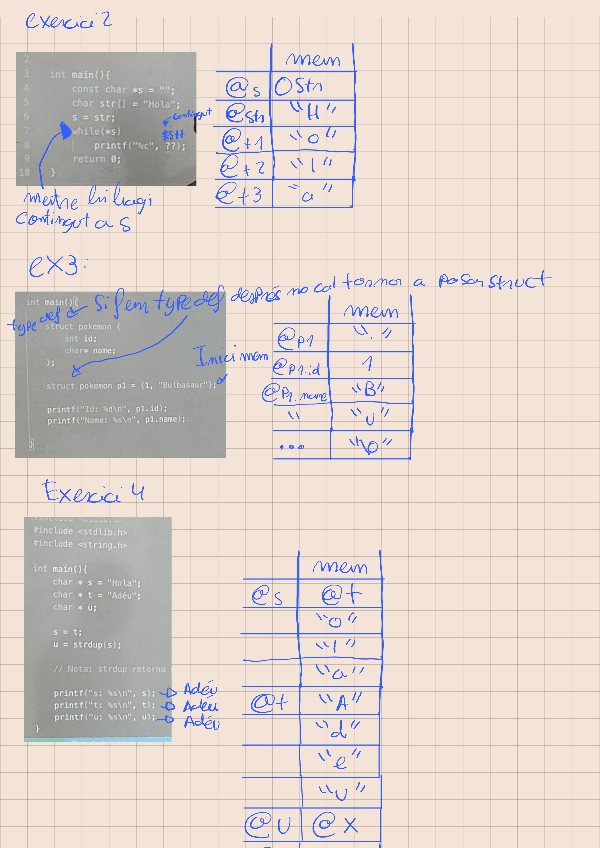 exercici 2
mem
2
3 int main(){
4 const char *s = "";
5 char str[] = "Hola";
6 s = str;
7 while(*s)
8 printf("%c", ??);
9 return 0;
10 }
contingut
*s++
@s 0Str
@str "H"
@+1 "o"
@+2 "l"
@+3 "a"
contingut a s
ex3:
int main(){
typedef
si fem typedef després no cal tornar a posar struct
struct pokemon {
int id;
char* name;
};
struct pokemon p1 = {1, "Bulbasaur"};
printf("Id: %d\n", p1.id);
printf("Name: %s\n", p1.name);
}
Inici mem
mem
@p1 "."
@p1.id 1
@p1.name "B"
" "u"
... "\0"
Exercici 4
#include <stdlib.h>
#include <string.h>
int main(){
char * s = "Hola";
char * t = "Adéu";
char * u;
s = t;
u = strdup(s);
// Nota: strdup retorna
printf("s: %s\n", s); Adéu
printf("t: %s\n", t); Adéu
printf("u: %s\n", u); Adéu
}
mem
@s @t
"o"
"l"
"a"
@t "A"
"d"
"e"
"u"
@u @x